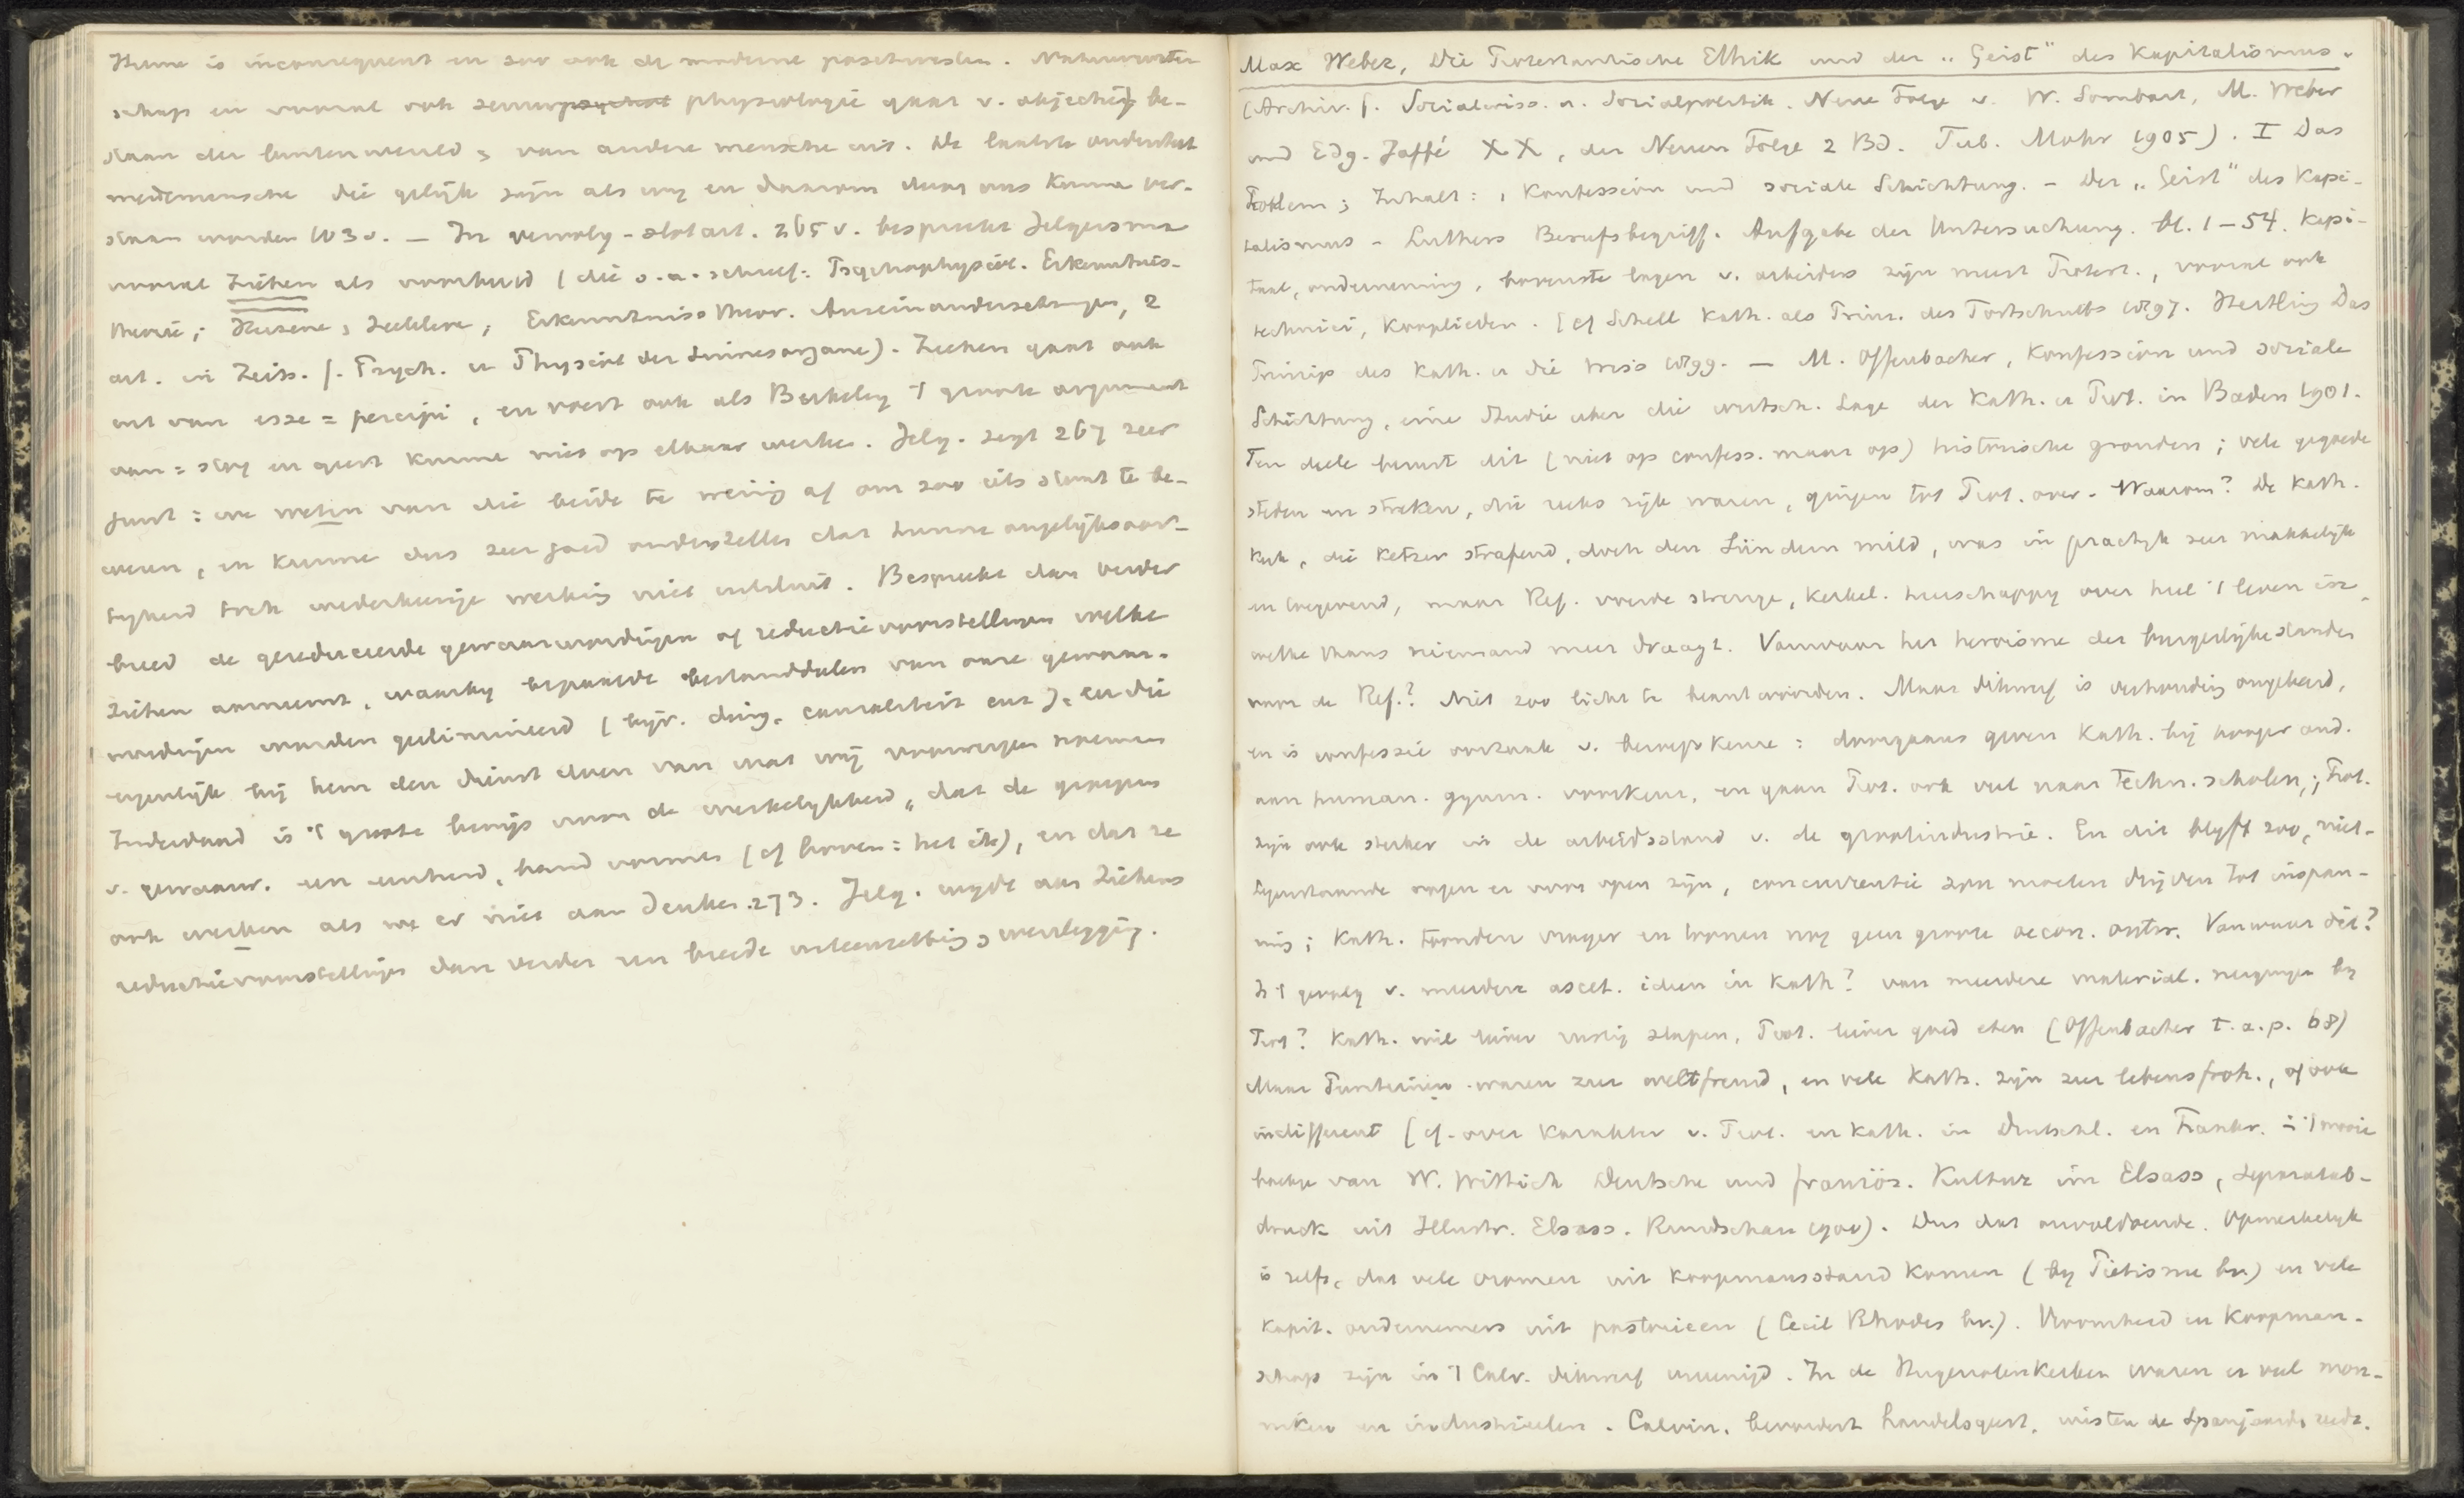 Hume is inconsequent en zoo ook de moderne positivisten. Natuurweten
schap en vooral ook zenuwpsychol physiologie gaat v. objectief be-
staan der buitenwereld & van andere mensche uit. De laatste onderstelt
medemensche die gelijk zijn als wij en daarom door ons kunne ver-
staan worden 163 v. — In vervolg-slotart. 265 v. bespreekt Jelgersma
vooral Ziehen als voorbeeld (die o.a. schreef: Psychophysiol. Erkenntnis-
theorie; Erkenntniss theor. Auseinandersetzungen, 2
art. in Zeits. f. Psych. u Physiol der Sinnesorgane). Ziehen gaat ook
uit van esse = percipi, en voert ook als Berkeley 't groote argument
aan = stof en geest kunne niet op elkaar werke. Jelg. zegt 267 zeer
juist: we weten van die beide te weinig af om zoo iets stout te be-
weren, en kunne dus zeer goed onderstelle dat hunne ongelijksoor-
tigheid toch wederkeerige werking niet uitsluit. Bespreekt dan verder
breed de gereduceerde gewaarwordingen of reductievoorstellingen welke
Ziehen aanneemt, waarbij bepaalde bestanddeelen van onze gewaar-
wordingen worden geelimineerd (bijv. ding, causaliteit enz.), en die
eigenlijk bij hem den dienst doen van wat wij voorwerpen noemen
Inderdaad is 't groote bewijs voor de werkelijkheid, dat de groepen
v. gewaarw. een eenheid, band vormen (cf boven: het ik), en dat ze
ook werken als we er niet aan denken. 273. Jelg. wijdt aan Ziehens
reductievoorstellingen dan verder een breede uiteenzetting & weerlegging.
Max Weber, Die Protestantische Ethik und der „Geist" des Kapitalismus.
(Archiv. f. Socialwiss. u. Socialpolitik. Neue Folge v. W. Sombart, M. Weber
und Edg. Jaffé XX, der Neuen Folge 2 Bd. Tub. Mohr 1905). I Das
Problem; Inhalt: 1 Konfession und sociale Schichtung. – Der „Geist" des Kapi-
talismus – Luthers Berufsbegriff. Aufgabe der Untersuchung. bl. 1 – 54. Kapi-
taal, onderneming, bovenste lagen v. arbeiders zijn meest Protest., vooral ook
technici, kooplieden. [cf Schell Kath. als Prinz. des Fortschritts 1897. Hertling Das
Prinzip des Kath. u die Wiss 1899. — M. Offenbacher, Konfession und soziale
Schichtung, eine Studie uber die wirtsch. Lage der Kath. u Prot. in Baden 1901.
Ten deele berust dit (niet op confess. maar op) historische gronden; vele gegoede
steden en streken, die reeds rijk waren, gingen tot Prot. over. Waarom? De Kath.
Kerk, die Ketzer strafend, doch den Sündern mild, was in practijk zeer makkelijk
en toegevend, maar Ref. voerde strenge, kerkel. heerschappij over heel 't leven in,
welke thans niemand meer draagt. Vanwaar het heroisme der burgerlijke standen
voor de Ref.? Niet zoo licht te beantwoorden. Maar dikwerf is verhouding omgekeerd,
en is confessie oorzaak v. beroepskeuze: doorgaans geven Kath. bij hooger ond.
aan human. gymn. voorkeur, en gaan Prot. ook veel naar techn. scholen; Prot.
zijn ook sterker in de arbeidsstand v. de grootindustrie. En dit blijft zoo, niet-
tegenstaande wegen er voor open zijn, concurrentie zou moeten drijven tot inspan-
ning; Kath. stonden vroeger en toonen nog geen groote oecon. ontw. Vanwaar dit?
Is 't gevolg v. meerdere ascet. ideen in Kath? van meerdere material. neigingen bij
Prot? Kath. wil liever rustig slapen, Prot. liever goed eten (Offenbacher t.a.p. 68)
Maar Puriteinen waren zeer weltfremd, en vele Kath. zijn zeer lebensfroh., of ook
indifferent [cf. over karakter v. Prot. en kath. in Deutschl. en Frankr. in 't mooie
boekje van W. Wittich Deutsche und französ. Kultur im Elsass, Separatab-
druck uit Illustr. Elsass. Rundschau 1900). Dus dat onvoldoende. Opmerkelijk
is zelfs, dat vele vromen uit koopmansstand komen (bij Pietisme bv.) en vele
kapit. ondernemers uit pastorieen (Cecil Rhodes bv.). Vroomheid en koopman-
schap zijn in 't Calv. dikwerf vereenigd. In de Hugenotenkerken waren er veel mon-
niken en industrieelen. Calvin. bevordert handelsgeest, wisten de Spanjaards reeds.